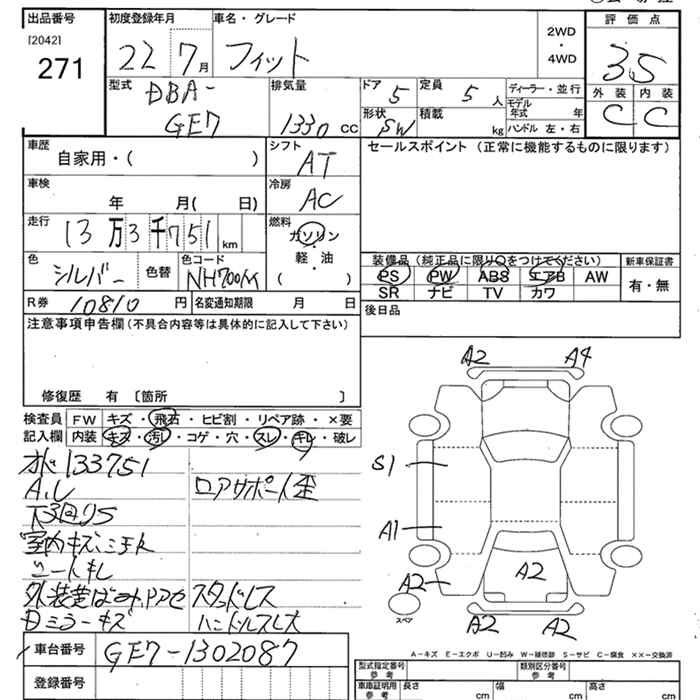 出品番号 初度登録年月 車名・グレード 評価点
[2042]
271 22 7月 フィット 2WD・4WD 3.5
外装 内装
C C
型式 DBA-GE7 排気量 1330 cc ドア 5 定員 5 人 ディーラー・並行
形状 SW 積載 kg モデル年式 年
ハンドル 左・右
車歴 自家用・( ) シフト AT セールスポイント (正常に機能するものに限ります)
車検 年 月( 日) 冷房 AC
走行 13万3千751 km 燃料 ガソリン・軽・油 ( )
色 シルバー 色替 色コード NH700M
装備品 (純正品に限り○をつけてください) 新車保証書
PS PW ABS エアB AW 有・無
SR ナビ TV カワ
R券 10810 円 名変通知期限 月 日 後日品
注意事項申告欄 (不具合内容等は具体的に記入して下さい)
修復歴 有 〔箇所 〕
検査員 FW キズ・飛石・ヒビ割・リペア跡・×要
記入欄 内装 キズ・汚レ・コゲ・穴・スレ・キレ・破レ
133751
A.L ロアサポート歪
下回りS
室内キズ
シートキレ
スタッドレス
Dミラーキズ ハンドルスレ大
A2 A4
S1
A1
A2 A2
スペア
A2 A2
車台番号 GE7-1302087
登録番号
A-キズ E-エクボ U-凹み W-補修跡 S-サビ C-腐食 ××-交換済
型式指定番号 参考 類別区分番号 参考
車庫証明用 参考 長さ cm 幅 cm 高さ cm